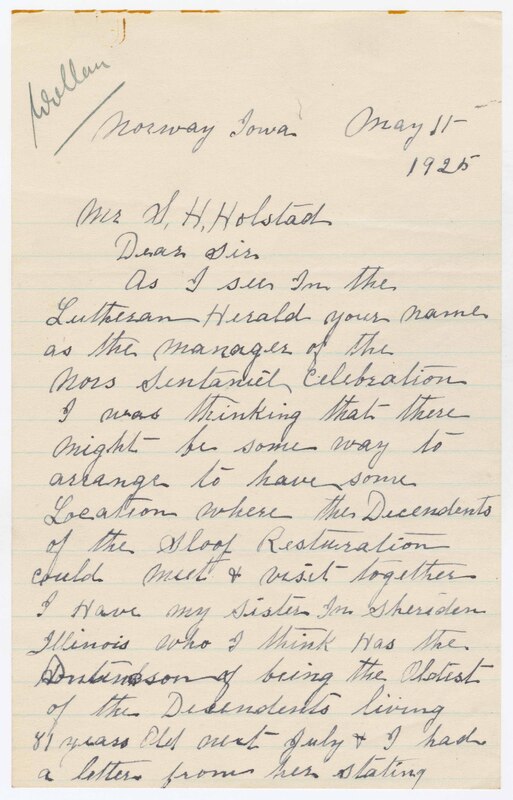 Wollan
Norway Iowa May 11-
1925
Mr S, H, Holstad
Dear Sir
As I see In the
Lutheran Herald your name
as the manager of the
Nors Sentaniel Celebration
I was thinking that there
might be some way to
arrange to have some
Location where the Decendents
of the Sloop Restauration
could meet & visit together
I Have my sister In Sheriden
Illinois who I think Has the
of being the Oldest
of the Decendents living
81 years Old next July & I had
a letter from her stating